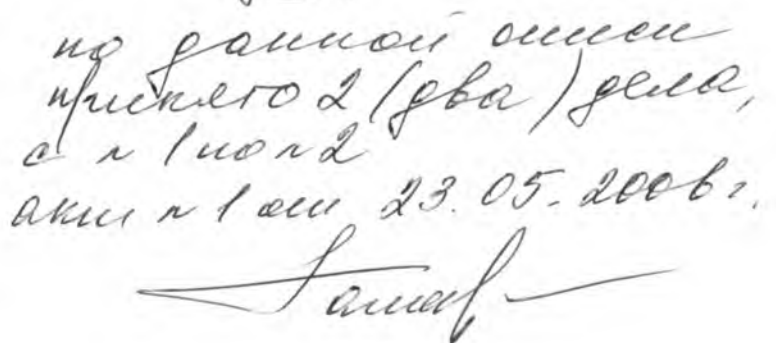 по данной описи
принято 2 (два) дела,
с № 1 по № 2
акт № 1 от 23.05.2006 г.